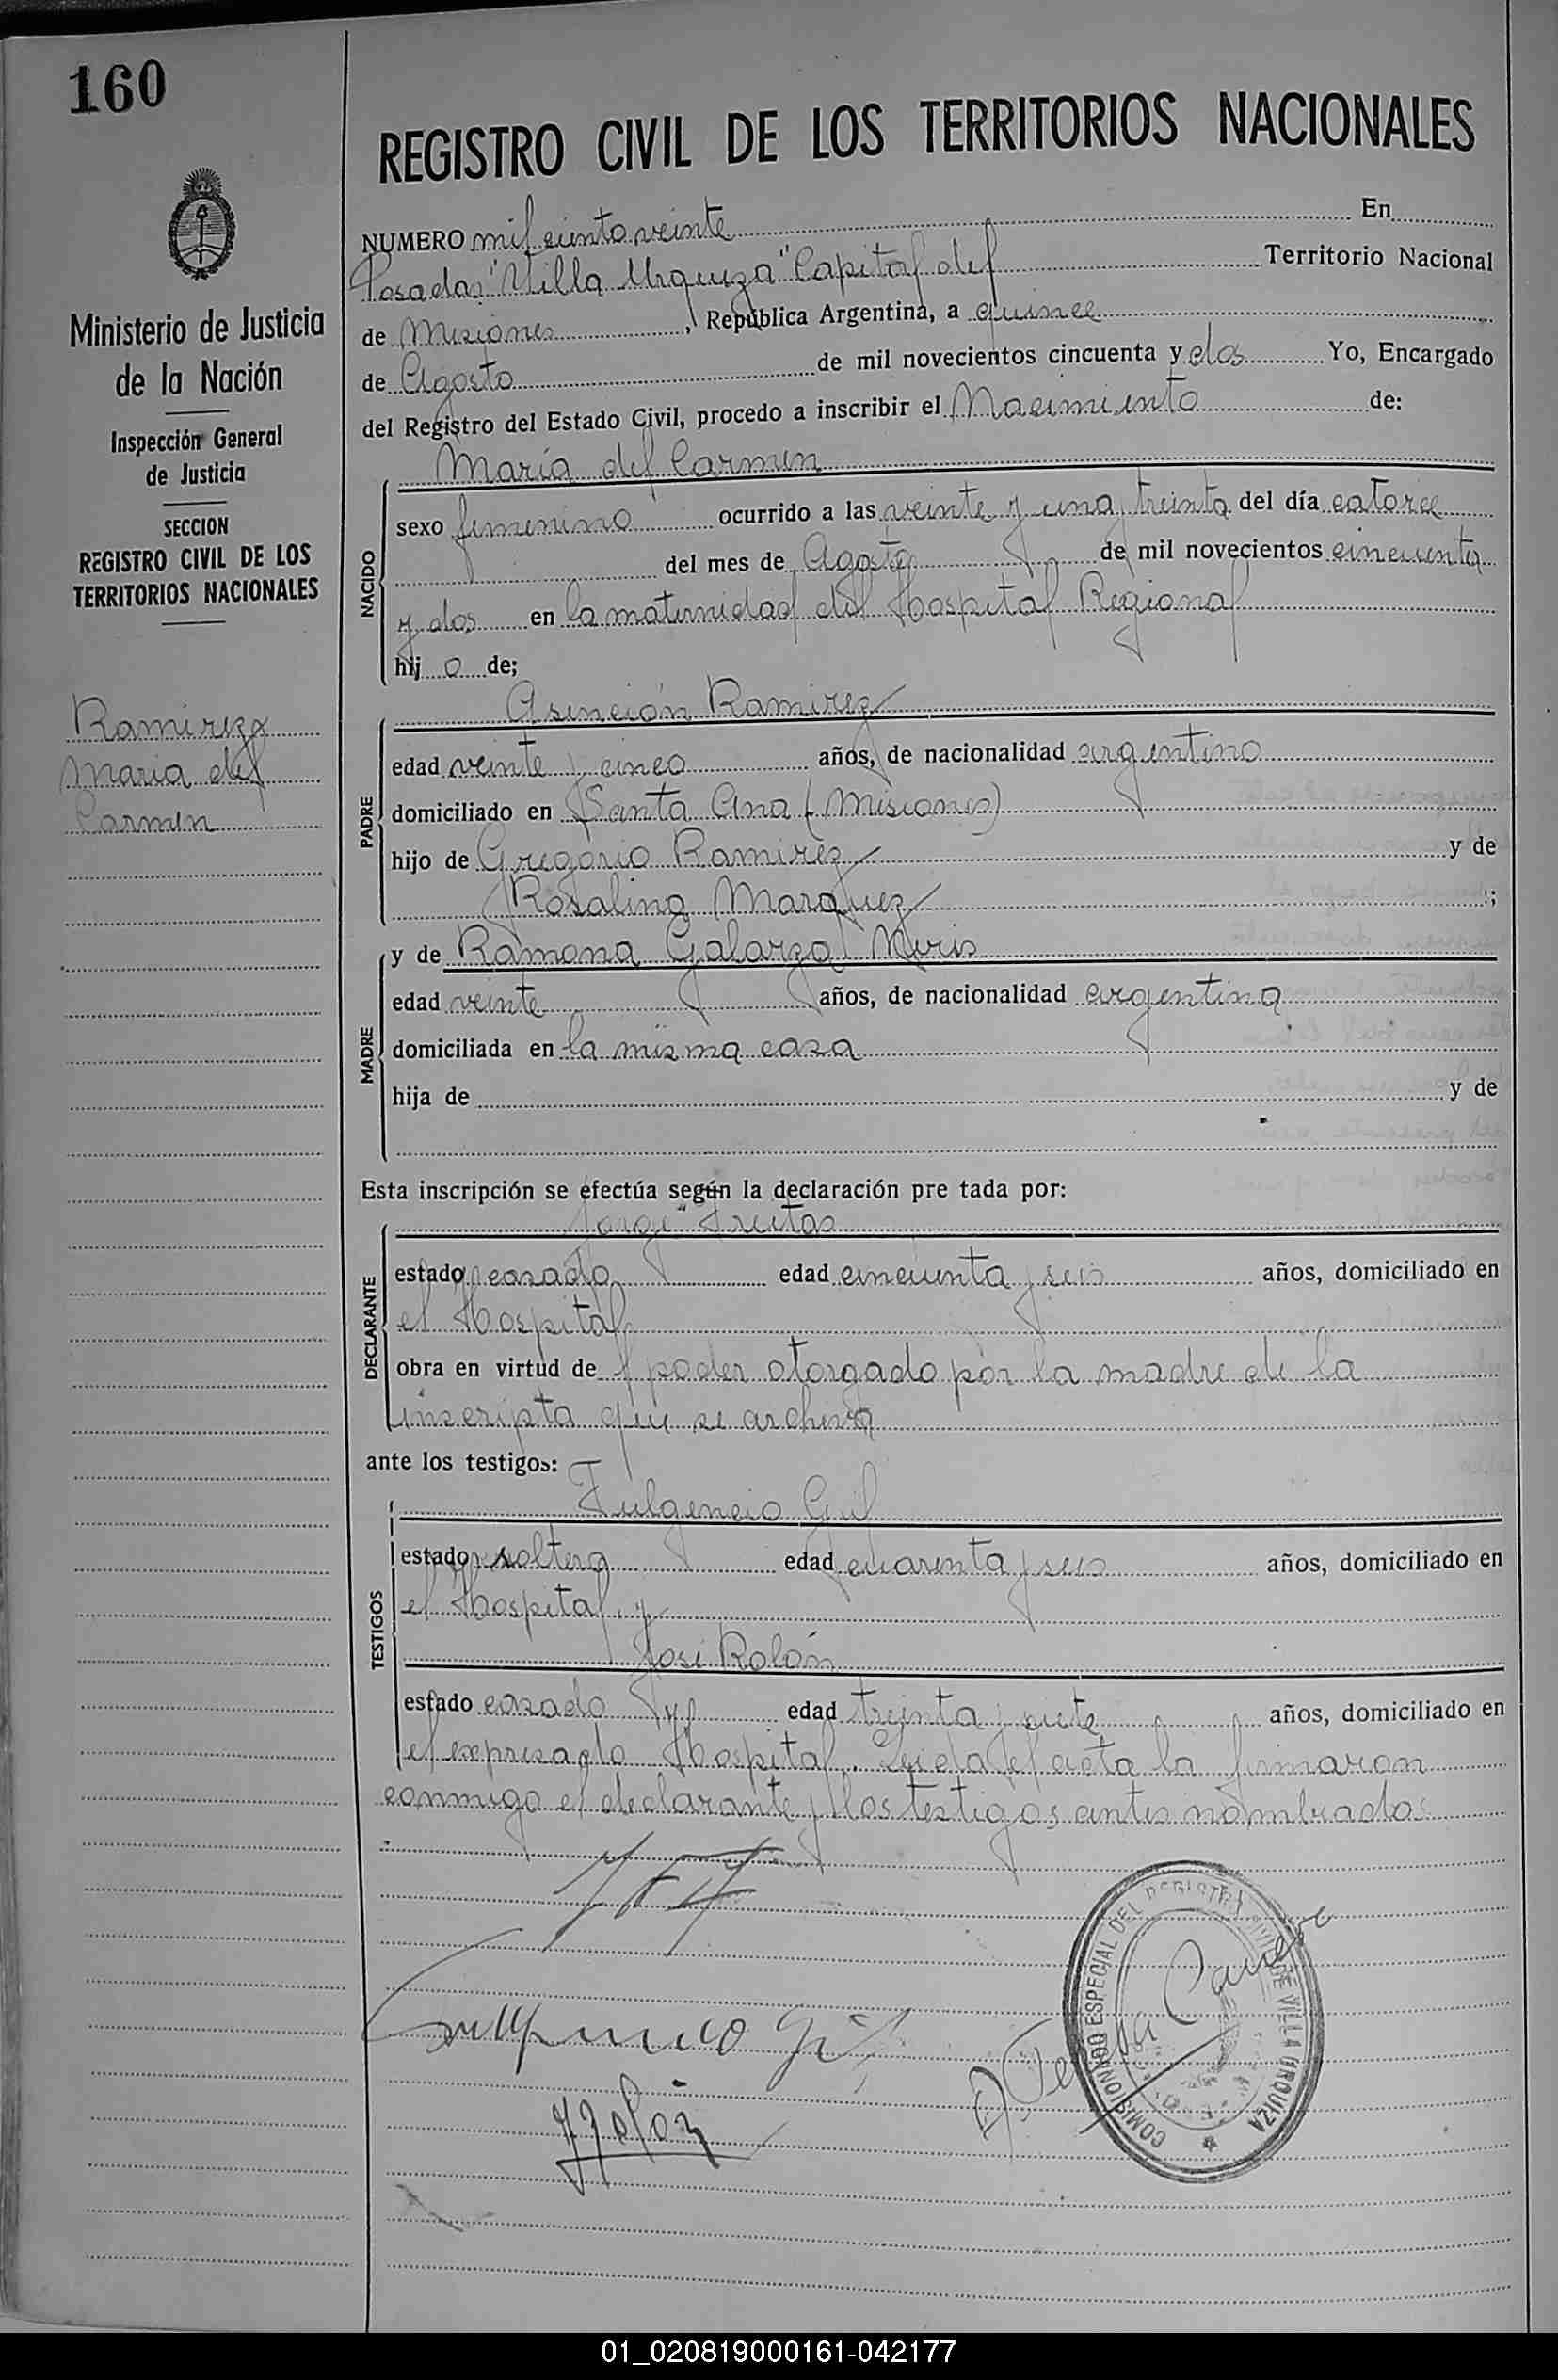 160
Ministerio de Justicia
de la Nación
Inspección General
de Justicia
SECCION
REGISTRO CIVIL DE LOS
TERRITORIOS NACIONALES
Ramirez
Maria del
Carmen
REGISTRO CIVIL DE LOS TERRITORIOS NACIONALES
NUMERO mil ciento veinte En
Posadas "Villa Urquiza" Capital del Territorio Nacional
de Misiones, República Argentina, a quince
de Agosto de mil novecientos cincuenta y dos Yo, Encargado
del Registro del Estado Civil, procedo a inscribir el Nacimiento de:
María del Carmen
NACIDO
sexo femenino ocurrido a las veinte y una y treinta del día catorce
del mes de Agosto de mil novecientos cincuenta
y dos en la maternidad del Hospital Regional
hij a de;
PADRE
Asención Ramirez
edad veinte y cinco años, de nacionalidad argentino
domiciliado en Santa Ana (Misiones)
hijo de Gregorio Ramirez y de
Rosalina Marquez ;
MADRE
y de Ramona Galarza
edad veinte años, de nacionalidad argentina
domiciliada en la misma casa
hija de y de
Esta inscripción se efectúa según la declaración pre tada por:
DECLARANTE
Jorge Freitas
estado casado edad cincuenta y seis años, domiciliado en
el Hospital
obra en virtud del poder otorgado por la madre de la
inscripta que se archiva
ante los testigos:
TESTIGOS
Fulgencio Gil
estado soltero edad cuarenta y seis años, domiciliado en
el Hospital, y
José Rolón
estado casado edad treinta y siete años, domiciliado en
el expresado Hospital. Leida el acta la firmaron
conmigo el declarante y los testigos antes nombrados
Fulgencio Gil
JRolón
COMISIONADO ESPECIAL DEL REGISTRO CIVIL DE VILLA URQUIZA
01_020819000161-042177